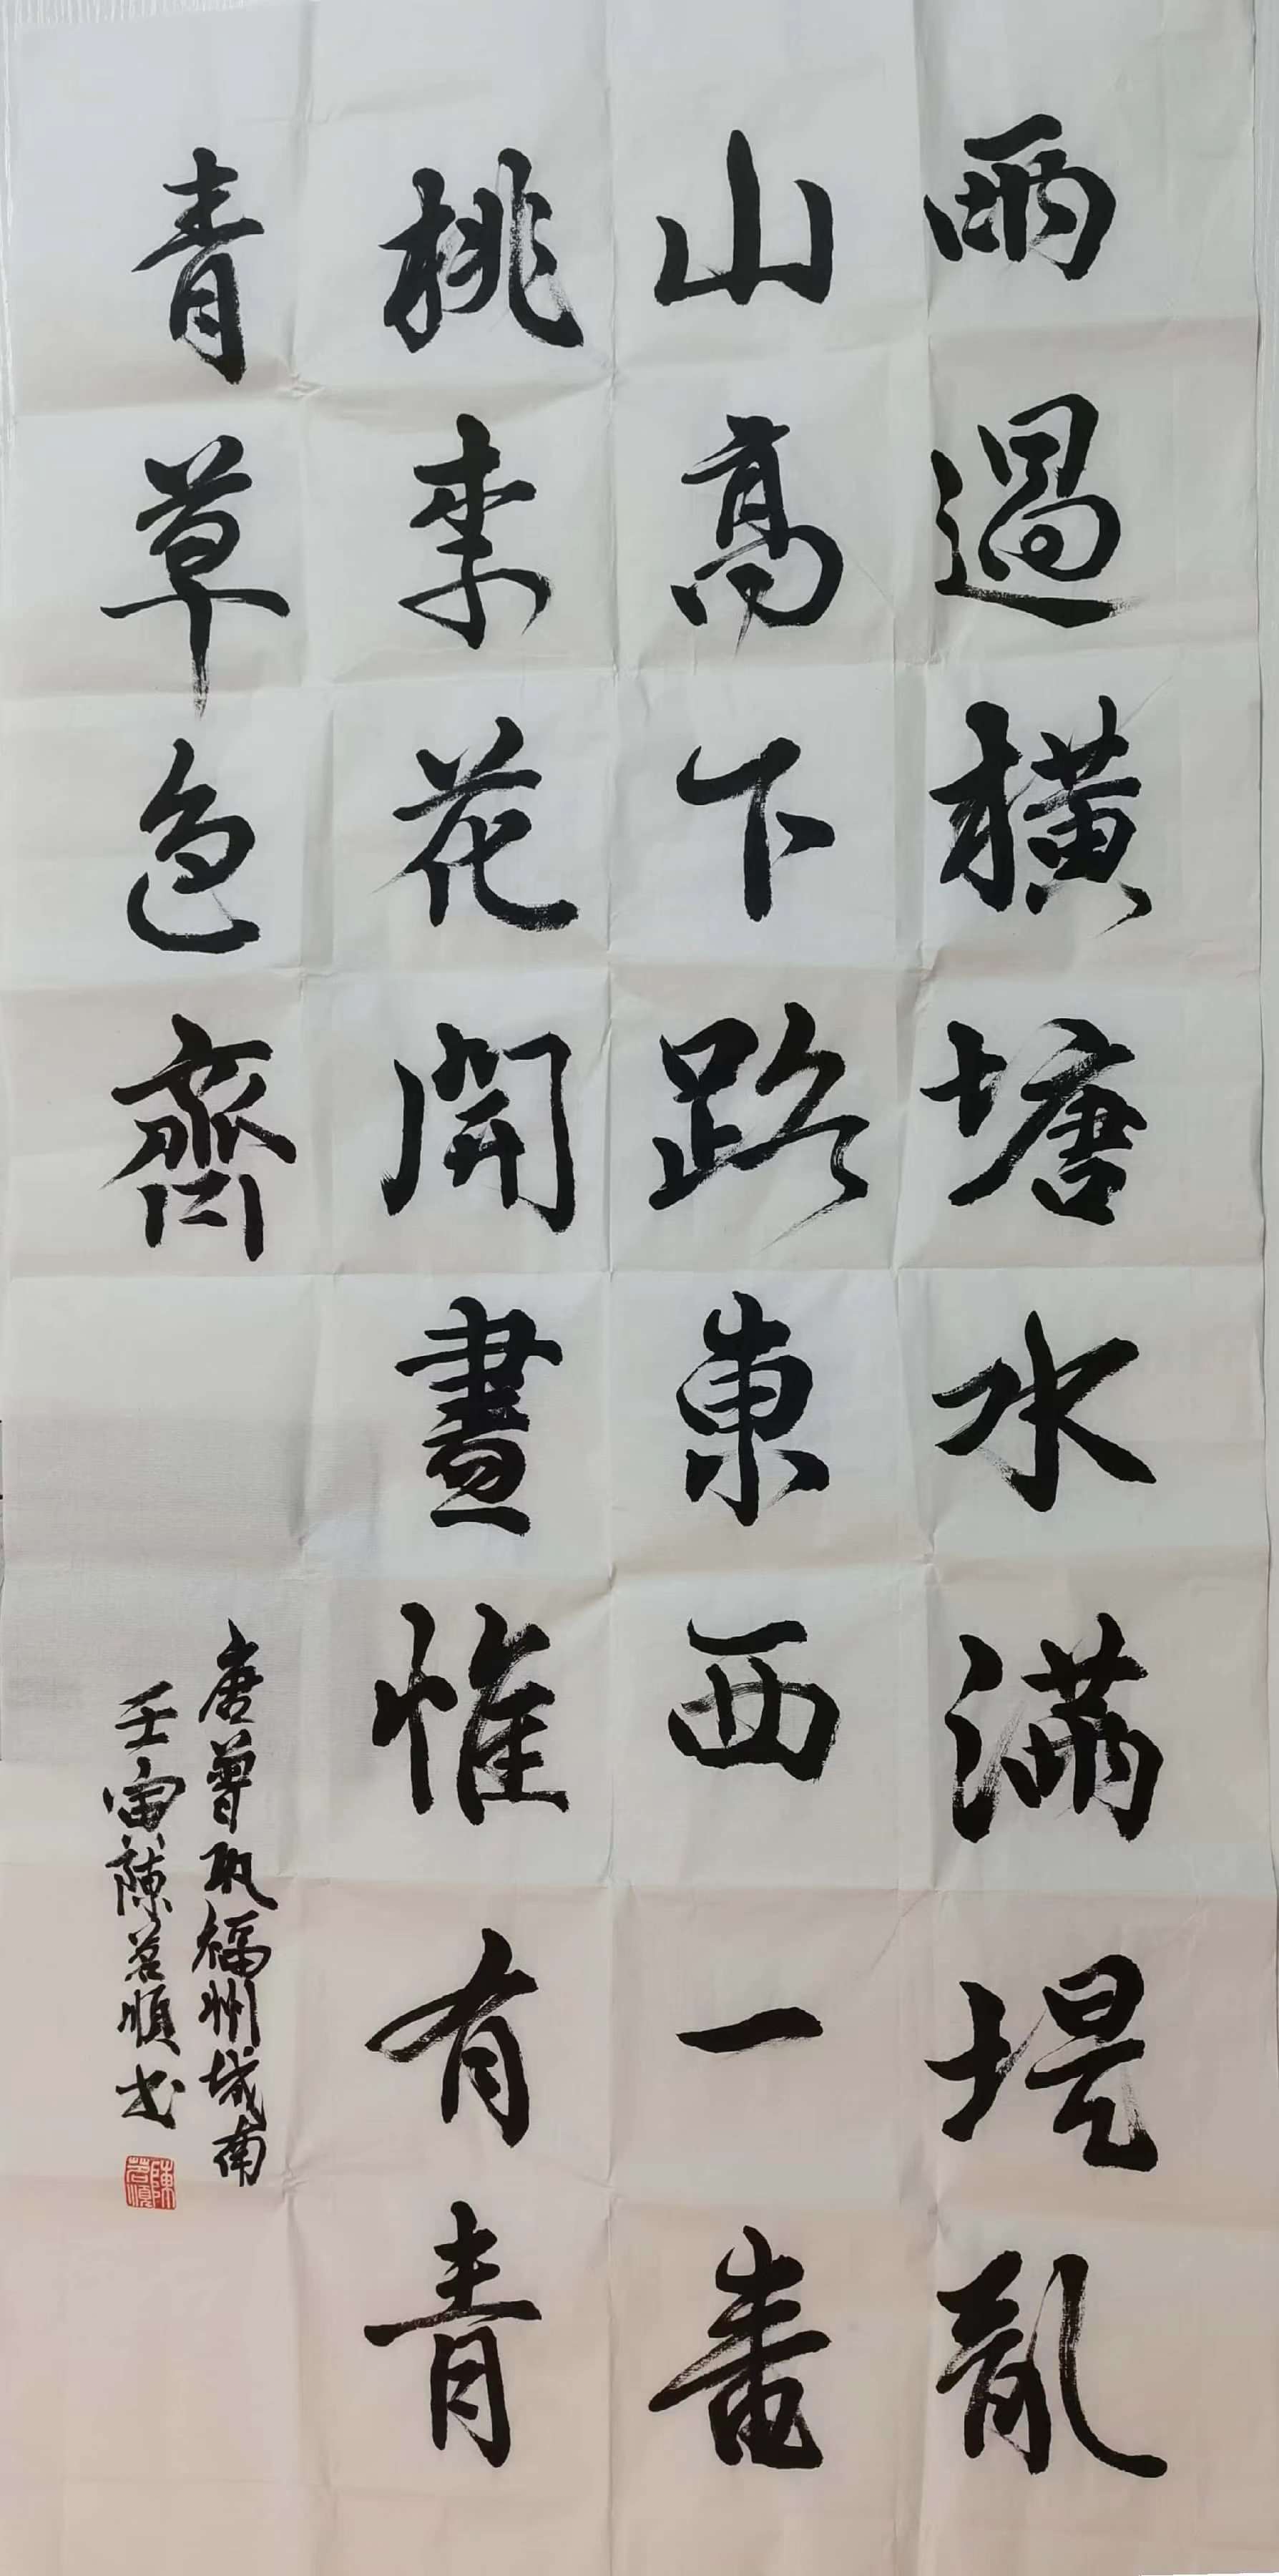 雨過橫塘水滿堤亂
山高下路東西一番
桃李花開盡惟有青
青草色齊
唐曾巩福州城南
壬寅陳茗順书
陳茗順